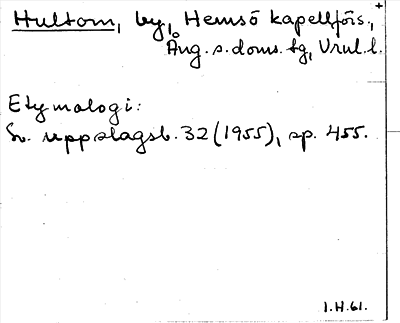 Hultom, by, Hemsö kapellförs.,
Ång. s. doms. tg, Vrul. l.
Etymologi:
Sv. uppslagsb. 32 (1955), sp. 455.
I.H.61.